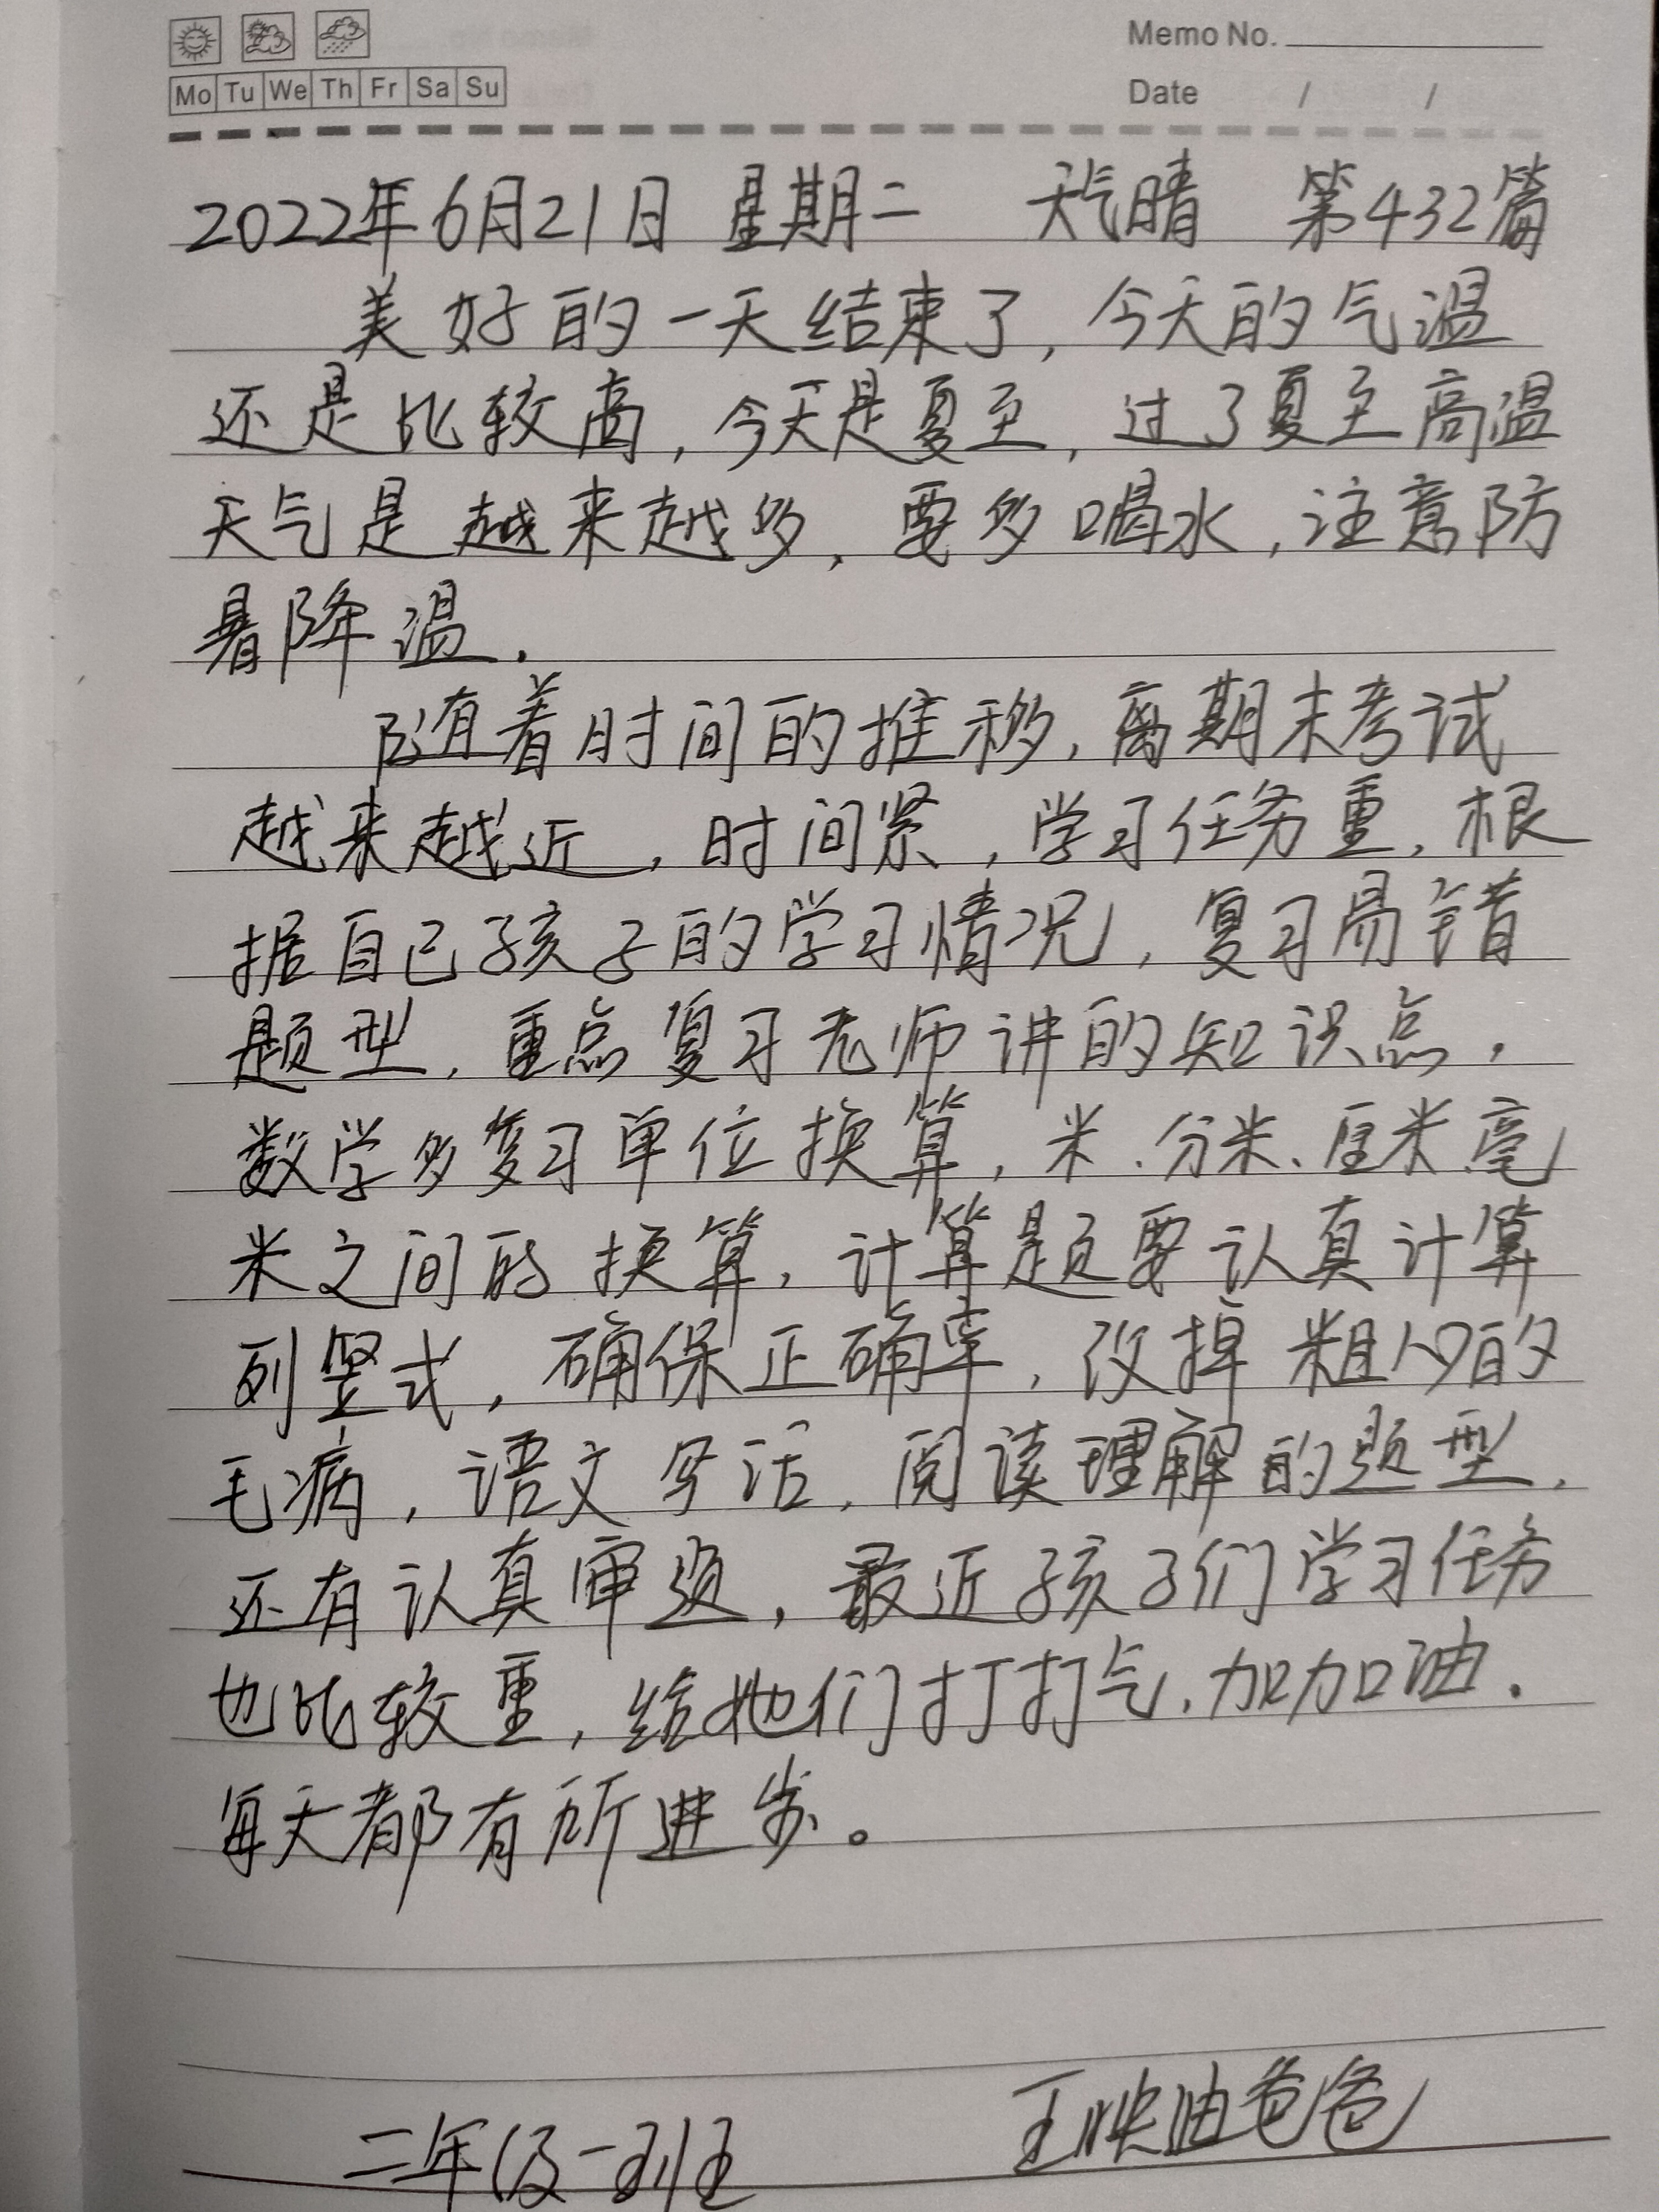 Memo No.
Mo Tu We Th Fr Sa Su
Date / /
2022年6月21日 星期二 天气晴 第432篇
美好的一天结束了,今天的气温
还是比较高,今天是夏至,过了夏至高温
天气是越来越多,要多喝水,注意防
暑降温.
随着时间的推移,离期末考试
越来越近,时间紧,学习任务重,根
据自己孩子的学习情况,复习易错
题型,重点复习老师讲的知识点,
数学多复习单位换算,米、分米、厘米、毫
米之间的换算,计算题要认真计算
列竖式,确保正确率,改掉粗心的
毛病,语文写话,阅读理解的题型,
还有认真审题,最近孩子们学习任务
也比较重,给她们打打气,加加油.
每天都有所进步。
二年级一班
王 爸爸